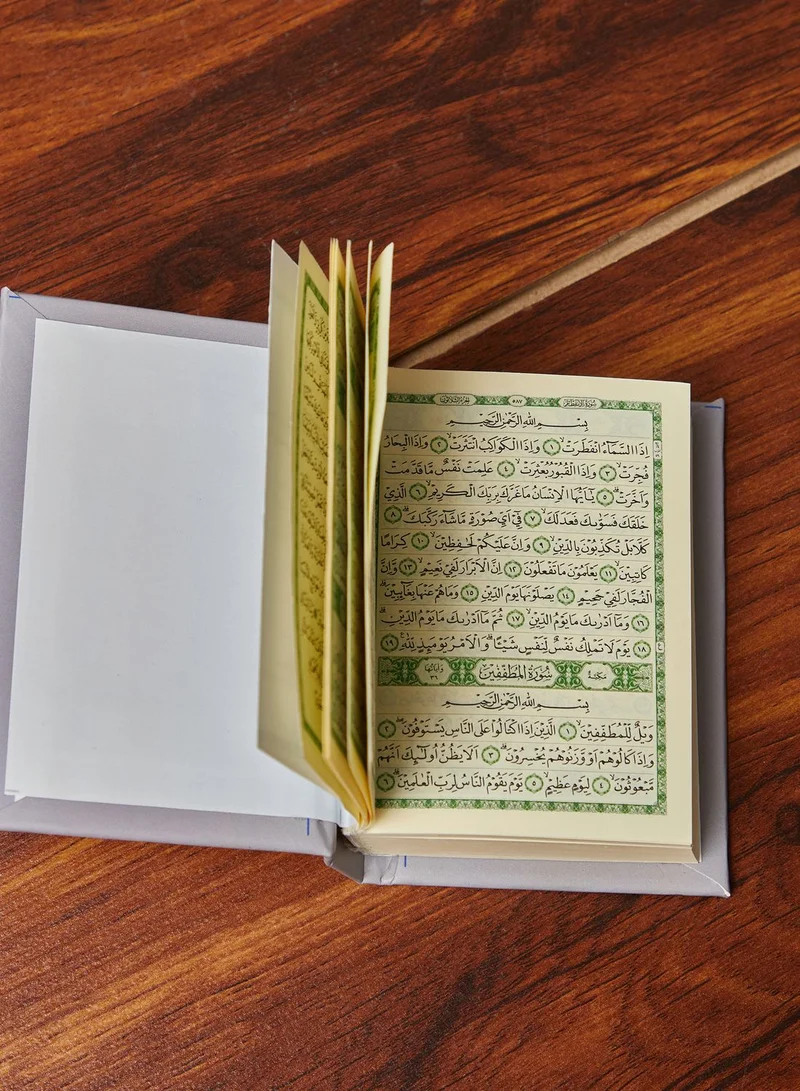 سُورَةُ الْاِنْفِطَارِ ٥٨٧ الجُزءُ الثَّلَاثُونَ
بِسْمِ اللهِ الرَّحْمٰنِ الرَّحِيمِ
اِذَا السَّمَآءُ انْفَطَرَتْۙ ﴿١﴾ وَاِذَا الْكَوَاكِبُ انْتَثَرَتْۙ ﴿٢﴾ وَاِذَا الْبِحَارُ
فُجِّرَتْۙ ﴿٣﴾ وَاِذَا الْقُبُورُ بُعْثِرَتْۙ ﴿٤﴾ عَلِمَتْ نَفْسٌ مَا قَدَّمَتْ
وَاَخَّرَتْۜ ﴿٥﴾ يَٓا اَيُّهَا الْاِنْسَانُ مَا غَرَّكَ بِرَبِّكَ الْكَرِيمِۙ ﴿٦﴾ اَلَّذِي
خَلَقَكَ فَسَوّٰيكَ فَعَدَلَكَۙ ﴿٧﴾ فِٓي اَيِّ صُورَةٍ مَا شَٓاءَ رَكَّبَكَۜ ﴿٨﴾
كَلَّا بَلْ تُكَذِّبُونَ بِالدِّينِۙ ﴿٩﴾ وَاِنَّ عَلَيْكُمْ لَحَافِظِينَۙ ﴿١٠﴾ كِرَامًا
كَاتِبِينَۙ ﴿١١﴾ يَعْلَمُونَ مَا تَفْعَلُونَ ﴿١٢﴾ اِنَّ الْاَبْرَارَ لَفِي نَعِيمٍۚ ﴿١٣﴾ وَاِنَّ
الْفُجَّارَ لَفِي جَحِيمٍۚ ﴿١٤﴾ يَصْلَوْنَهَا يَوْمَ الدِّينِ ﴿١٥﴾ وَمَا هُمْ عَنْهَا بِغَٓائِبِينَۜ
﴿١٦﴾ وَمَٓا اَدْرٰيكَ مَا يَوْمُ الدِّينِۙ ﴿١٧﴾ ثُمَّ مَٓا اَدْرٰيكَ مَا يَوْمُ الدِّينِۜ
﴿١٨﴾ يَوْمَ لَا تَمْلِكُ نَفْسٌ لِنَفْسٍ شَيْـًٔاۜ وَالْاَمْرُ يَوْمَئِذٍ لِلّٰهِ ﴿١٩﴾
مَكِّيَّةٌ سُورَةُ الْمُطَفِّفِينَ وَاٰيَاتُهَا ٣٦
بِسْمِ اللهِ الرَّحْمٰنِ الرَّحِيمِ
وَيْلٌ لِلْمُطَفِّفِينَۙ ﴿١﴾ اَلَّذِينَ اِذَا اكْتَالُوا عَلَى النَّاسِ يَسْتَوْفُونَۘ ﴿٢﴾
وَاِذَا كَالُوهُمْ اَوْ وَزَنُوهُمْ يُخْسِرُونَۜ ﴿٣﴾ اَلَا يَظُنُّ اُو۬لٰٓئِكَ اَنَّهُمْ
مَبْعُوثُونَۙ ﴿٤﴾ لِيَوْمٍ عَظِيمٍۙ ﴿٥﴾ يَوْمَ يَقُومُ النَّاسُ لِرَبِّ الْعَالَمِينَۜ ﴿٦﴾